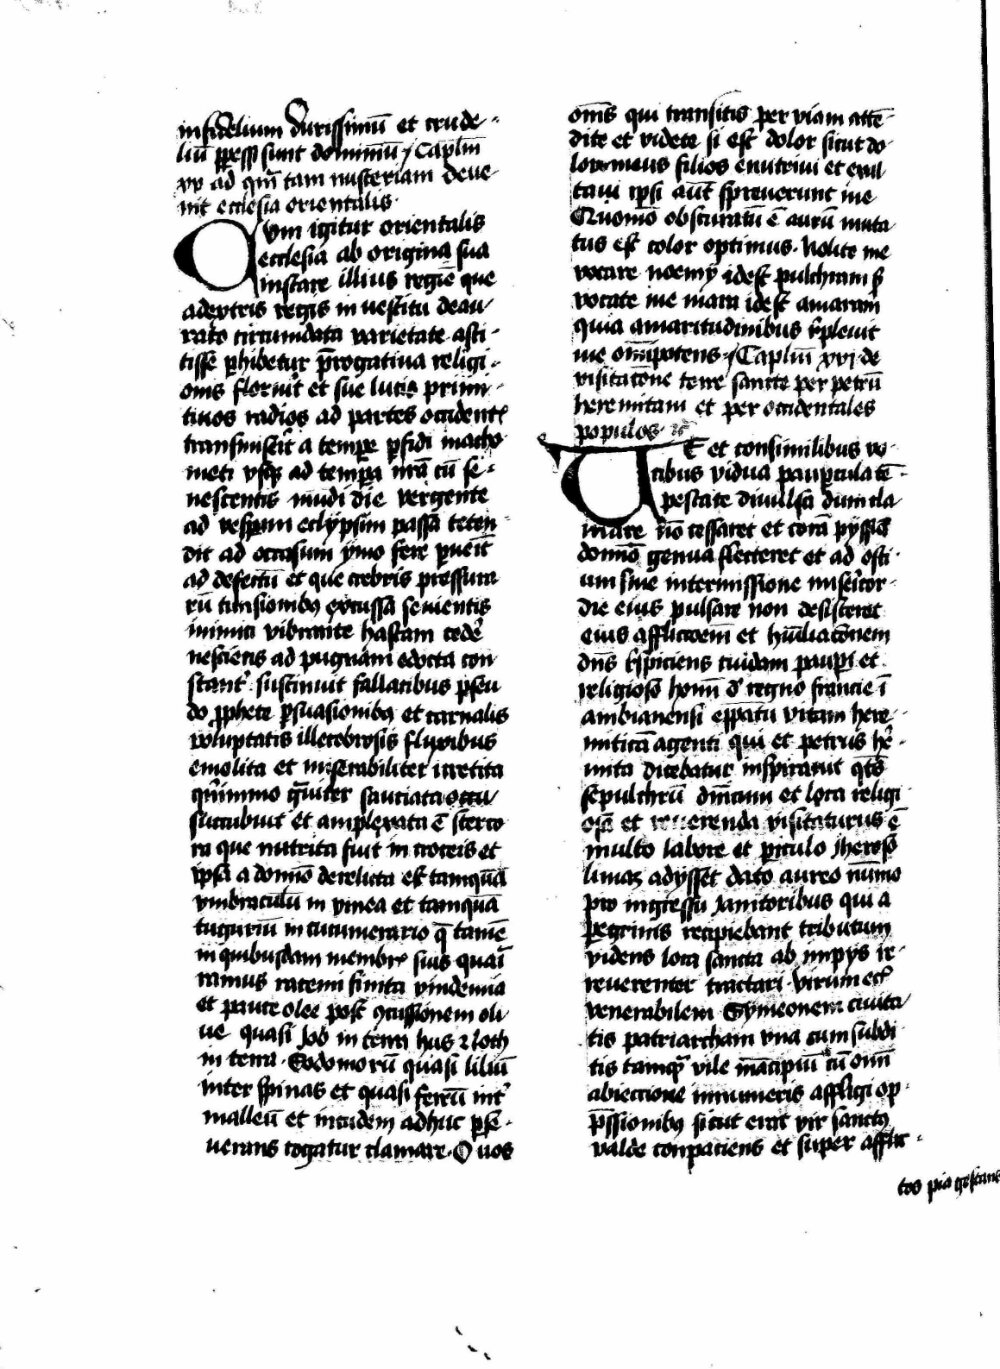 infidelium durissimū et crude-
liū ꝑpessi sunt dominiū / Capłm
xv ad qm̄ tam miseriam deve-
nit ecclesia orientalis
Cum igitur orientalis
ecclesia ab origina sua
instare illius regiē que
a dextris regis in vestitu deau-
rato circumdata varietate asti-
tisse ꝑhibetur p̄rogativa religi-
onis floruit et sue lucis primi-
tivos radios ad partes occident̄
transmiserit a tempore ꝑfidi macho
meti usq̄ ad tempora nr̄a cū se-
nescentis mūdi die vergente
ad vesperam eclypsim passa teten-
dit ad occasum ymo fere ꝑvenit
ad defectū et que crebris pressura
rū tunsionibꝰ excussa sevientis
inimici vibrante hastam cedē
nesciens ad pugnam edocta con
stant̄ sustinuit fallacibus pseu
do ꝓphete ꝑsuasionibꝰ et carnalis
voluptatis illecebrosis fluxibus
emolita et miserabiliter irretita
quīnimmo gͣviter sauciata occu
succubuit et amplexata ē sterco
ra que nutrita fuit in croceis et
ipsa a domīo derelicta est tamquā
umbraculū in vinea et tamquā
tuguriū in cucumerario q̄ tamē
in quibusdam membris suis quasi
ramus racemi finita vindemia
et pauce olee post ꝯcussionem oli
ve quasi Job in terra hus ⁊ loth
in terra Sodomorū quasi liliū
inter spinas et quasi ferrū int̄
malleū et incudem adhuc ꝑse-
verans cogatur clamare. O vos
om̄s qui transitis per viam attē-
dite et videte si est dolor sicut do
lor meus filios enutrivi et exal
tavi ipsi aut̄ spreverunt me
Quomō obscuratū ē aurū muta
tus est color optimus. Nolite me
vocare noemy idest pulchram s̄
vocate me mara idest amaram
quia amaritudinibus replevit
me om̄ipotens / Capłm xvj de
visitacōne terre sancte per petrū
heremitam et per occidentales
populos
De et consimilibus vo-
cibus vidua paupercula tē-
pestate divulsa dum cla-
mare nō cessaret et corā pyssimō
domīo genua flecteret et ad osti-
um sine intermissione mis̄icor-
die eius pulsare non desisteret
eius afflictōem et hūiliacōnem
dn̄s respiciens cuidam pauꝑi et
religioso homī de regno francie ī
ambianensi ep̄patu vitam here-
miticā agenti qui et petrus he-
mita dicebatur inspiravit qtͦ
sepulchrū dn̄icum et loca religi-
osa et reverenda visitaturus ē
multo labore et ꝑiculo Jheroso
limaꝫ adysset dato aureo nūmo
pro ingressu Janitoribus qui a
ꝑegrinis recipiebant tributum
videns loca sancta ab impijs ir-
reverenter tractari. virum ec̄
venerabilem Symeonem civita-
tis patriarcham una cum subdi-
tis tamq̄ vile māncipiū cū omī
abiectione innumeris affligi op-
p̄ssionibꝰ sicut erat vir sanctꝰ
valde compaciens et super afflic-
tos pia gestans